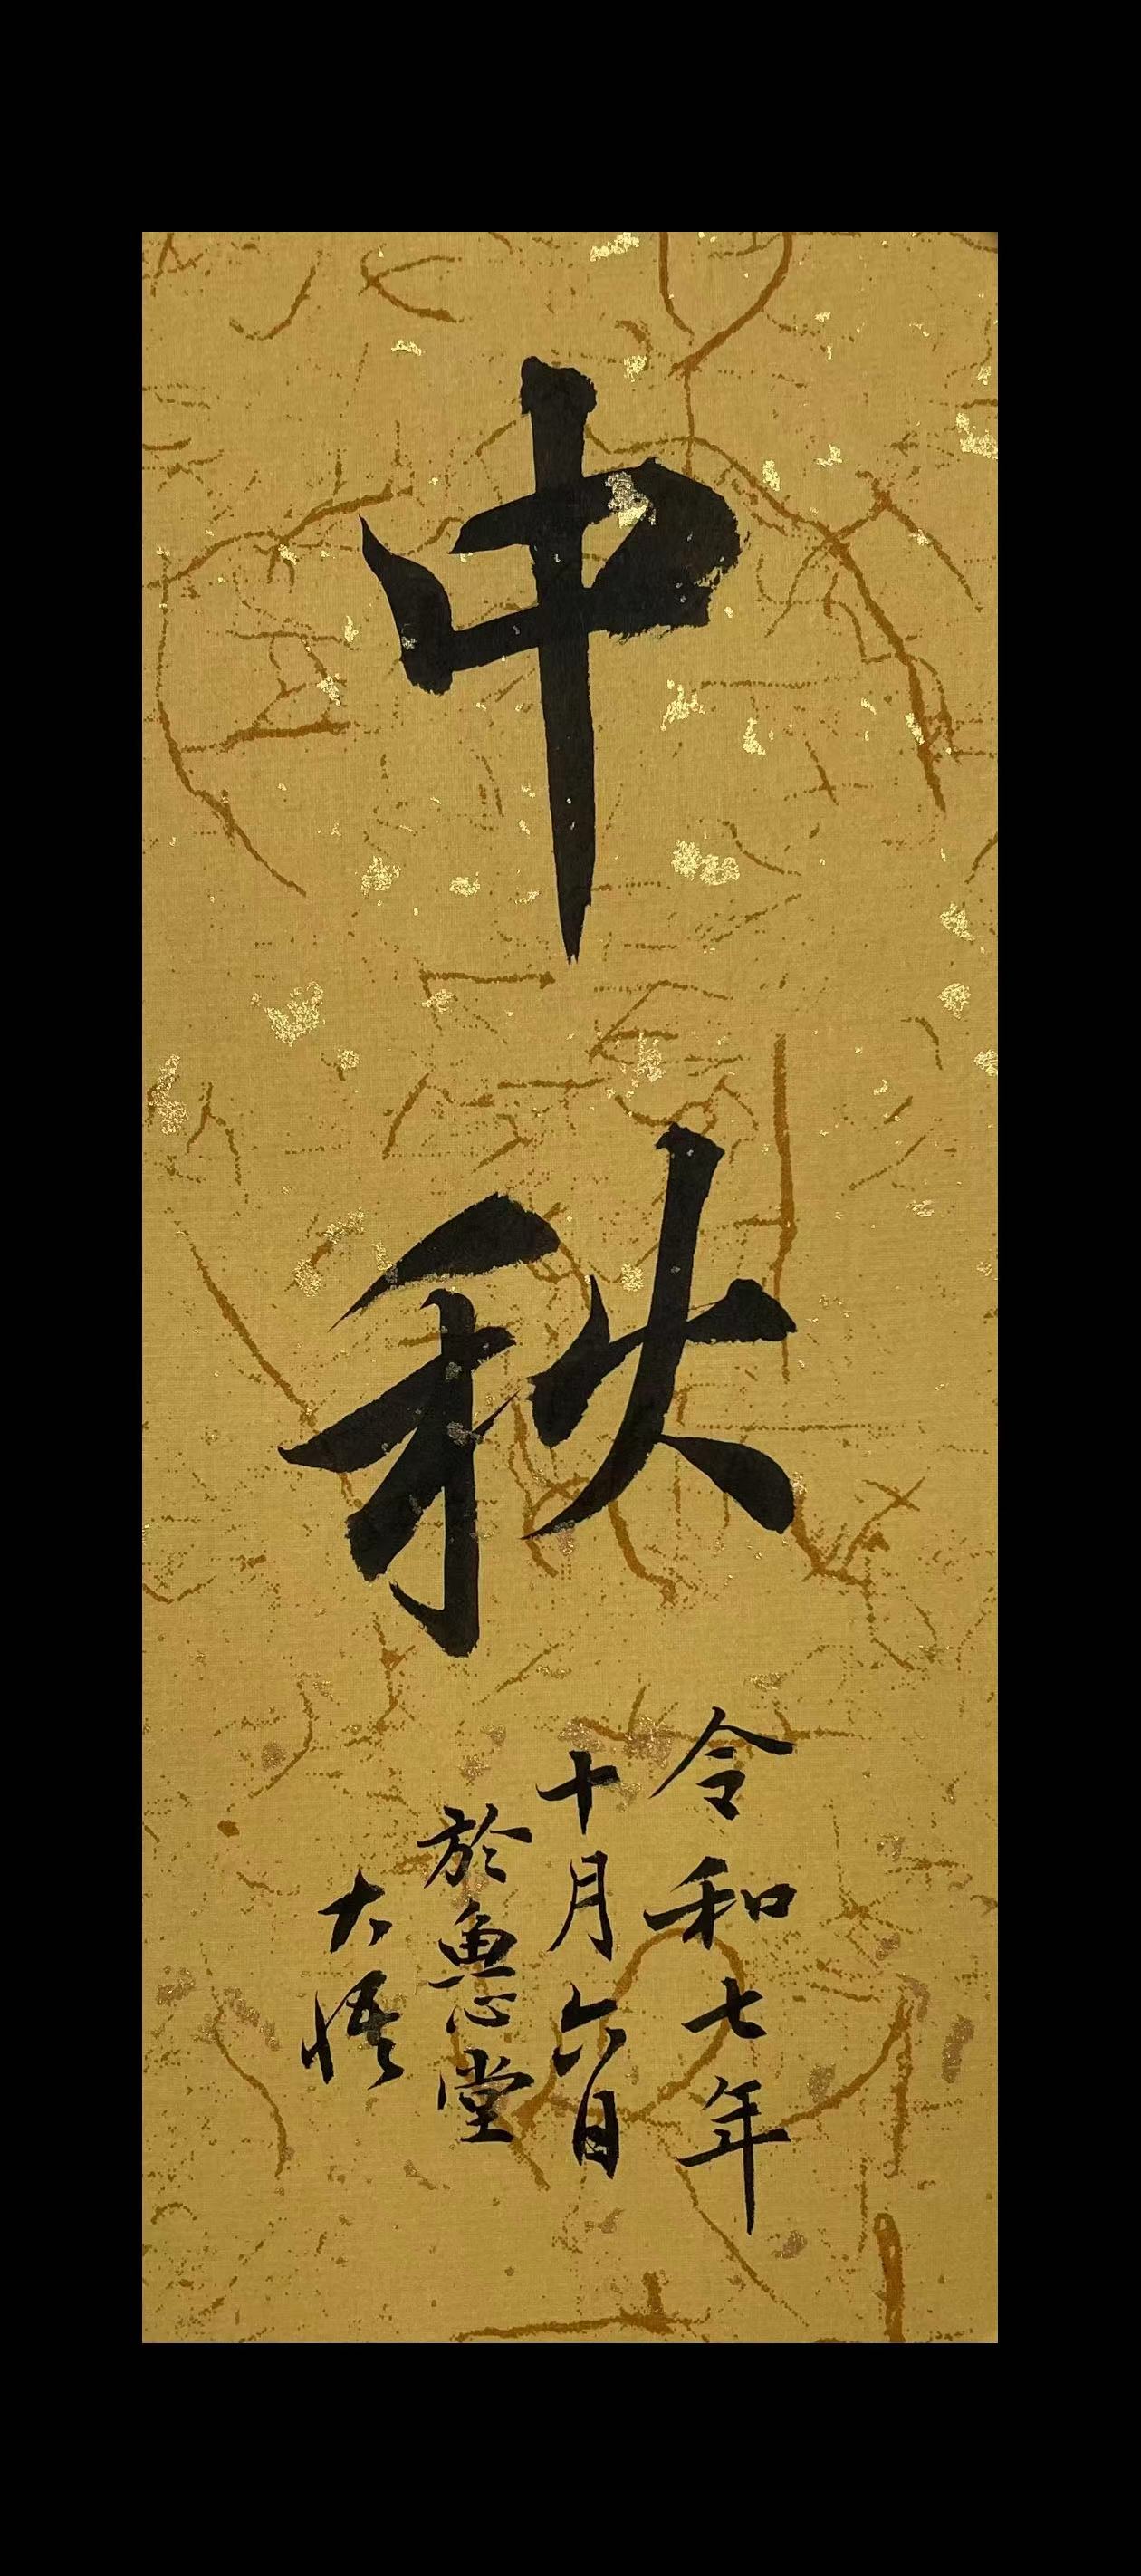 中秋
令和七年
十月六日
於魚心堂
大悟